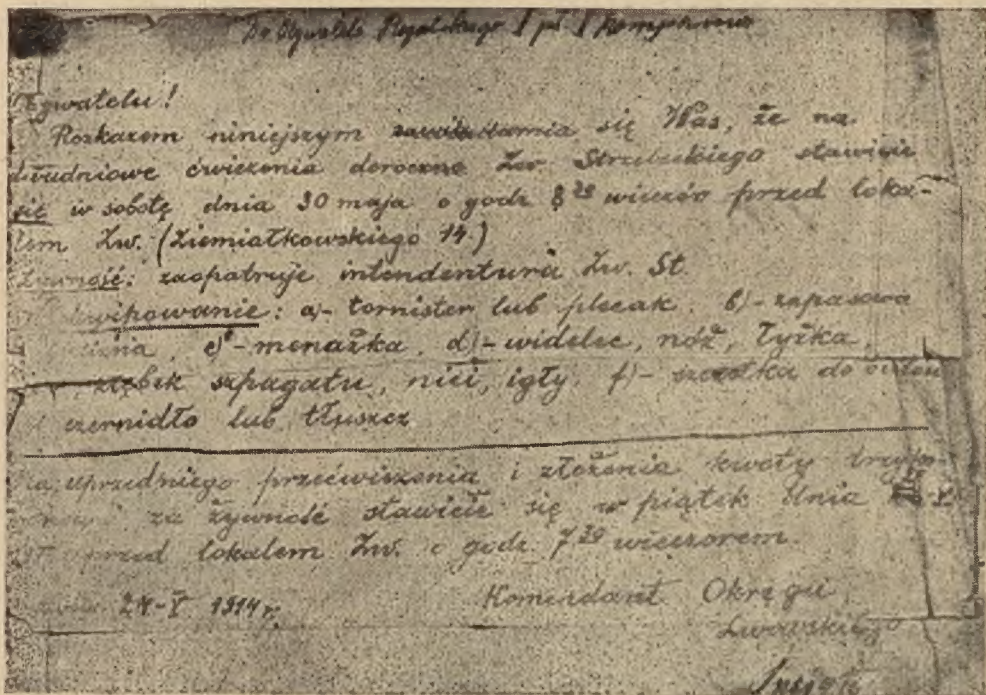 Do Obywatela Rogalskiego I pl. I kompanii
Obywatelu!
Rozkazem niniejszym zawiadamia się Was, że na
dwudniowe ćwiczenia doroczne Zw. Strzeleckiego stawicie
się w sobotę dnia 30 maja o godz 8 30 wieczór przed loka-
lem Zw. (Ziemiałkowskiego 14.)
Żywność: zaopatruje intendentura Zw. St.
Ekwipowanie: a)- tornister lub plecak. b)- zapasowa
bielizna, c)- menażka, d)- widelec, nóż, łyżka,
kłębek szpagatu, nici, igły. f)- szczotka do
czernidło lub tłuszcz
uprzedniego przećwiczenia i złożenia kwoty
za żywność stawicie się w piątek dnia
przed lokalem Zw. o godz. 7 30 wieczorem.
Lwów 24-V 1914 r.
Komendant Okręgu
Lwowskiego